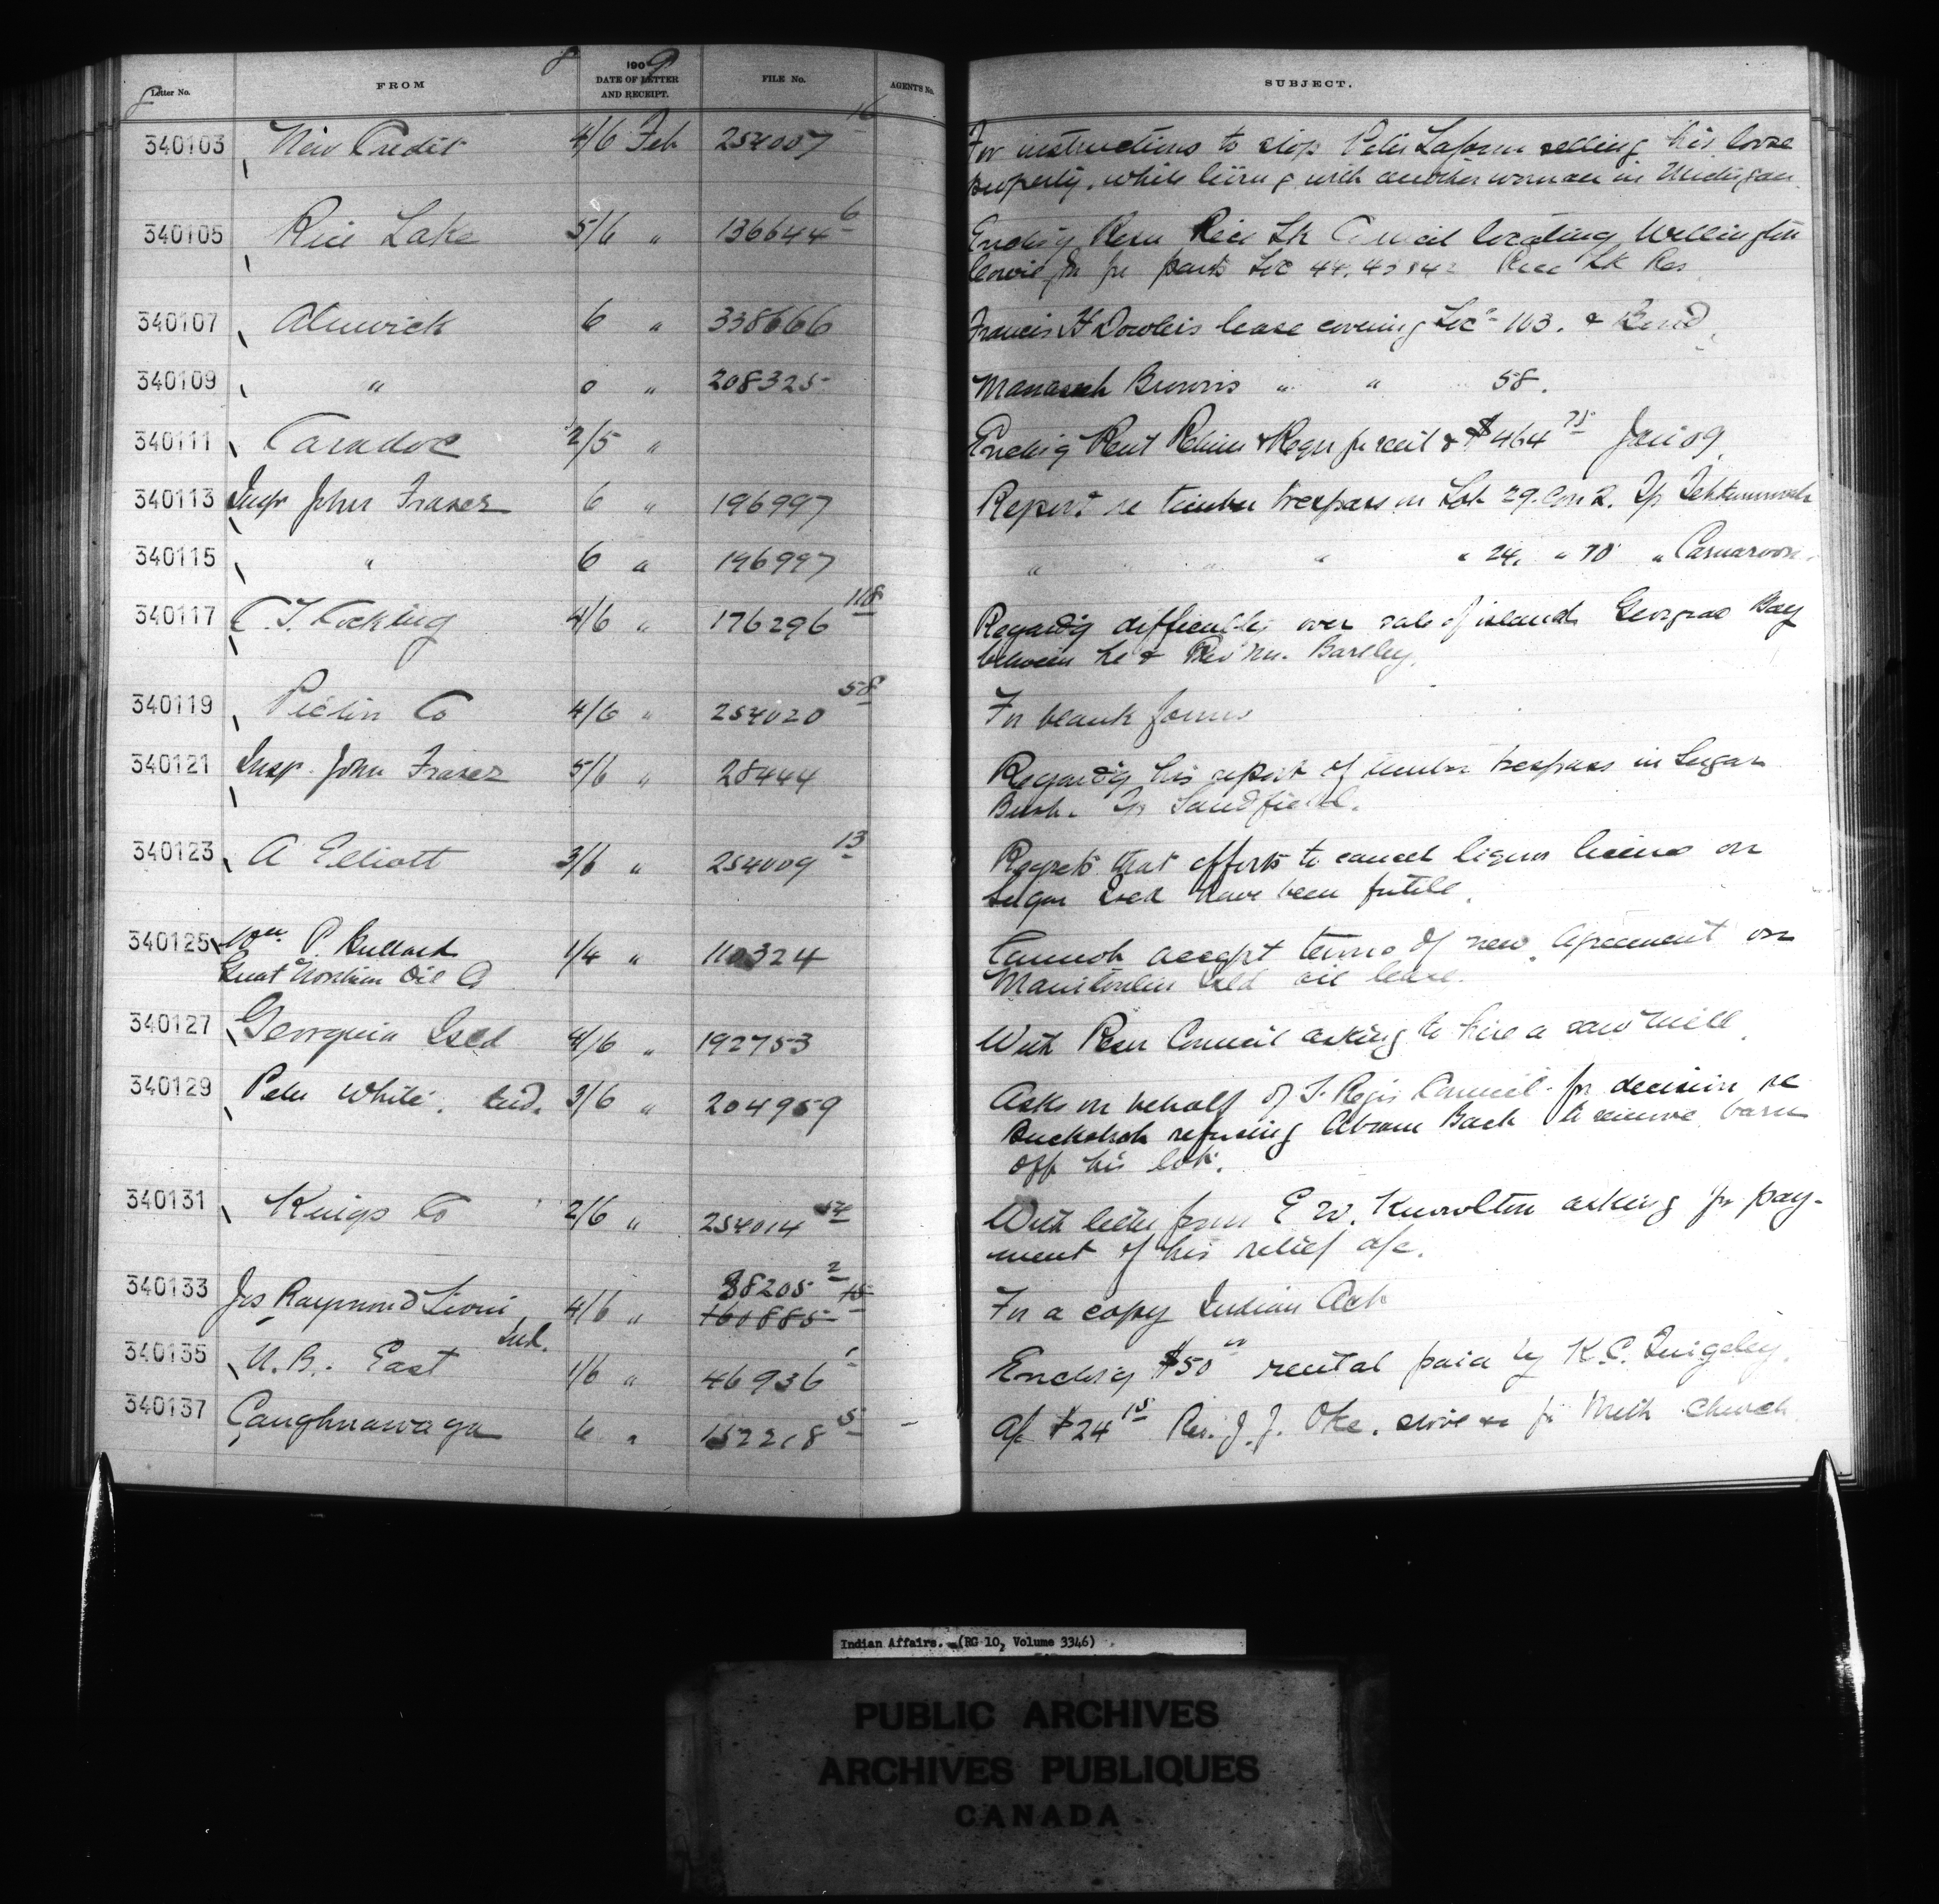 Letter No. FROM 1909 DATE OF LETTER AND RECEIPT. FILE No. AGENTS No. SUBJECT.
340103 New Credit 4/6 Feb 254007 16 For instructions to stop Peter Laform selling his loose
property, while living with another woman in Michigan
340105 Rice Lake 5/6 " 136644 6 Encl'g Resn Rice Lk Council locating Wellington
for parts Lot 44, 43 & 42 Rice Lk Res
340107 Alnwick 6 " 338666 Francis H Dowlers lease covering Lot 103. &
340109 " 6 " 208325 Manaseh Browns " " 58.
340111 Caradoc 2/5 " Encl'g Rent Return & Reqn for rent & $464 75 Jan 09
340113 Insp John Fraser 6 " 196997 Report re timber trespass on Lot 29. Con 2. Tp Tehkummah
340115 " 6 " 196997 " " " " " 24, " 10 " Carnarvon.
340117 C. T. Cocking 4/6 " 176296 118 Regard'g difficulty over sale of islands Georgian Bay
between he & Rev Mr. Barlley.
340119 Pictou Co 4/6 " 254020 58 For blank forms
340121 Insp. John Fraser 5/6 " 28444 Regard'g his report of timber trespass in Sugar
Bush. Tp Sandfield.
340123 A Elliott 3/6 " 254009 13 Regrets that efforts to cancel liquor license on
Sugar Isld have been futile.
340125 Wm. P. Bullard 1/4 " 110324 Cannot accept terms of new agreement on
Great Northern Oil Co Manitoulin Isld oil lease.
340127 Georgina Isld 4/6 " 192753 With Resn Council asking to hire a saw mill.
340129 Peter White. Ind. 3/6 " 204959 Asks on behalf of St. Regis Council for decision re
Buckshot refusing Abram Back to remove barn
off his lot.
340131 Kings Co 2/6 " 254014 54 With letter from E W. Knowlton asking for pay-
ment of his relief a/c.
340133 Jos Raymond Sioui, Ind. 4/6 " 38205 2 160885 15 For a copy Indian Act
340135 N. B. East 1/6 " 46936 1 Encl'g $50 00 rental paid by K. C. Quigley.
340137 Caughnawaga 6 " 152218 5 A/c $24 15 Rev. J. J. Oke. stove &c for Meth Church
Indian Affairs. (RG 10, Volume 3346)
PUBLIC ARCHIVES
ARCHIVES PUBLIQUES
CANADA